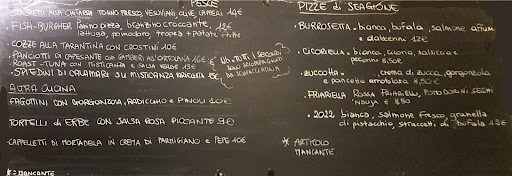 PESCE
SPAGHETTI ALLA CHITARRA TONNO FRESCO, VESUVIANI, OLIVE, CAPPERI 14€
FISH-BURGHER Panino pizza, branzino croccante, 12€
lattuga, pomodoro, tropea + patate fritte
COZZE ALLA TARANTINA CON CROSTINI 10€
PANCIOTTI DI CAPESANTE CON GAMBERI ALL'ORTOLANA 16€
ROAST-TUNA CON MISTICANZA E SALSA VERDE 13€
SPIEDINI DI CALAMARI SU MISTICANZA 15€
* TUTTI I SECONDI
SONO ACCOMPAGNATI
DA SCHIACCIATINA
ALTRA CUCINA
FAGOTTINI CON GORGONZOLA, RADICCHIO E PINOLI 10€
TORTELLI di ERBE CON SALSA ROSA PICCANTE 9€
CAPPELLETTI DI MORTADELLA IN CREMA DI PARMIGIANO E PEPE 10€
X = MANCANTE
PIZZE di STAGIONE
BURROSETTA - bianca, bufala, salmone affum
e datterini 12€
CICORIELLA - bianca, cicoria, salsiccia e
pecorino 8,50€
ZUCCOTTA - crema di zucca, gorgonzola
e pancetta arrotolata 8,50€
FRIARIELLA ROSSA FRIARIELLI, POMODORINI SECCHI
'NDUJA € 8,50
2022 bianca, salmone fresco, granella
di pistacchio, straccetti di bufala 13€
* ARTICOLO
MANCANTE